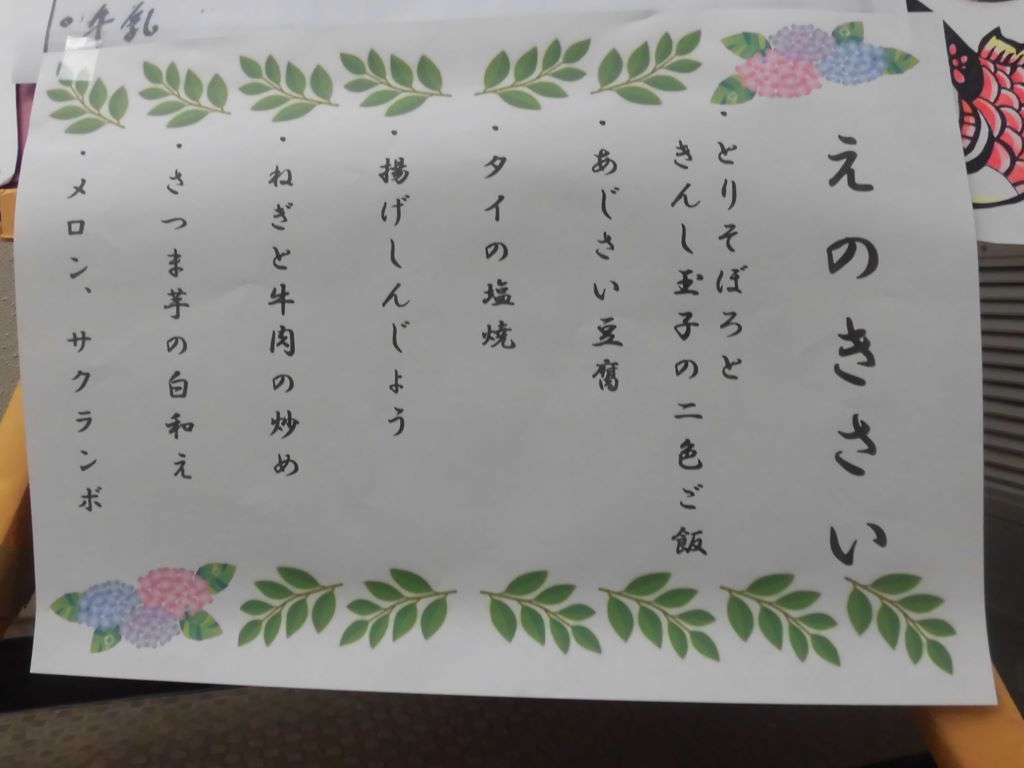 えのきさい
・とりそぼろと
きんし玉子の二色ご飯
・あじさい豆腐
・タイの塩焼
・揚げしんじょう
・ねぎと牛肉の炒め
・さつま芋の白和え
・メロン、サクランボ
牛乳